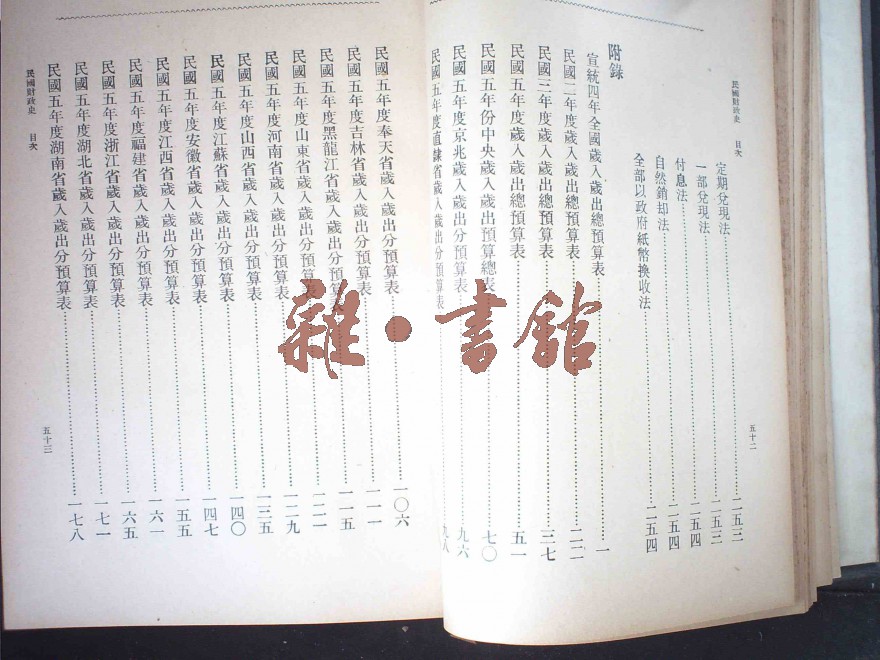 民國財政史　目次
五十二
定期兌現法……二五三
一部兌現法……二五三
付息法……二五四
自然銷却法……二五四
全部以政府紙幣換收法……二五四
附錄
宣統四年全國歲入歲出總預算表……一
民國二年度歲入歲出總預算表……二二
民國三年度歲入歲出總預算表……三七
民國五年度歲入歲出總預算表……五一
民國五年份中央歲入歲出預算總表……七〇
民國五年度京兆歲入歲出分預算表……九六
民國五年度直隸省歲入歲出分預算表……九八
民國五年度奉天省歲入歲出分預算表……一〇六
民國五年度吉林省歲入歲出分預算表……一一一
民國五年度黑龍江省歲入歲出分預算表……一一五
民國五年度山東省歲入歲出分預算表……一二一
民國五年度河南省歲入歲出分預算表……一二九
民國五年度山西省歲入歲出分預算表……一三五
民國五年度江蘇省歲入歲出分預算表……一四〇
民國五年度安徽省歲入歲出分預算表……一四七
民國五年度江西省歲入歲出分預算表……一五五
民國五年度福建省歲入歲出分預算表……一六一
民國五年度浙江省歲入歲出分預算表……一六五
民國五年度湖北省歲入歲出分預算表……一七一
民國五年度湖南省歲入歲出分預算表……一七八
民國財政史　目次
五十三
雜·書館